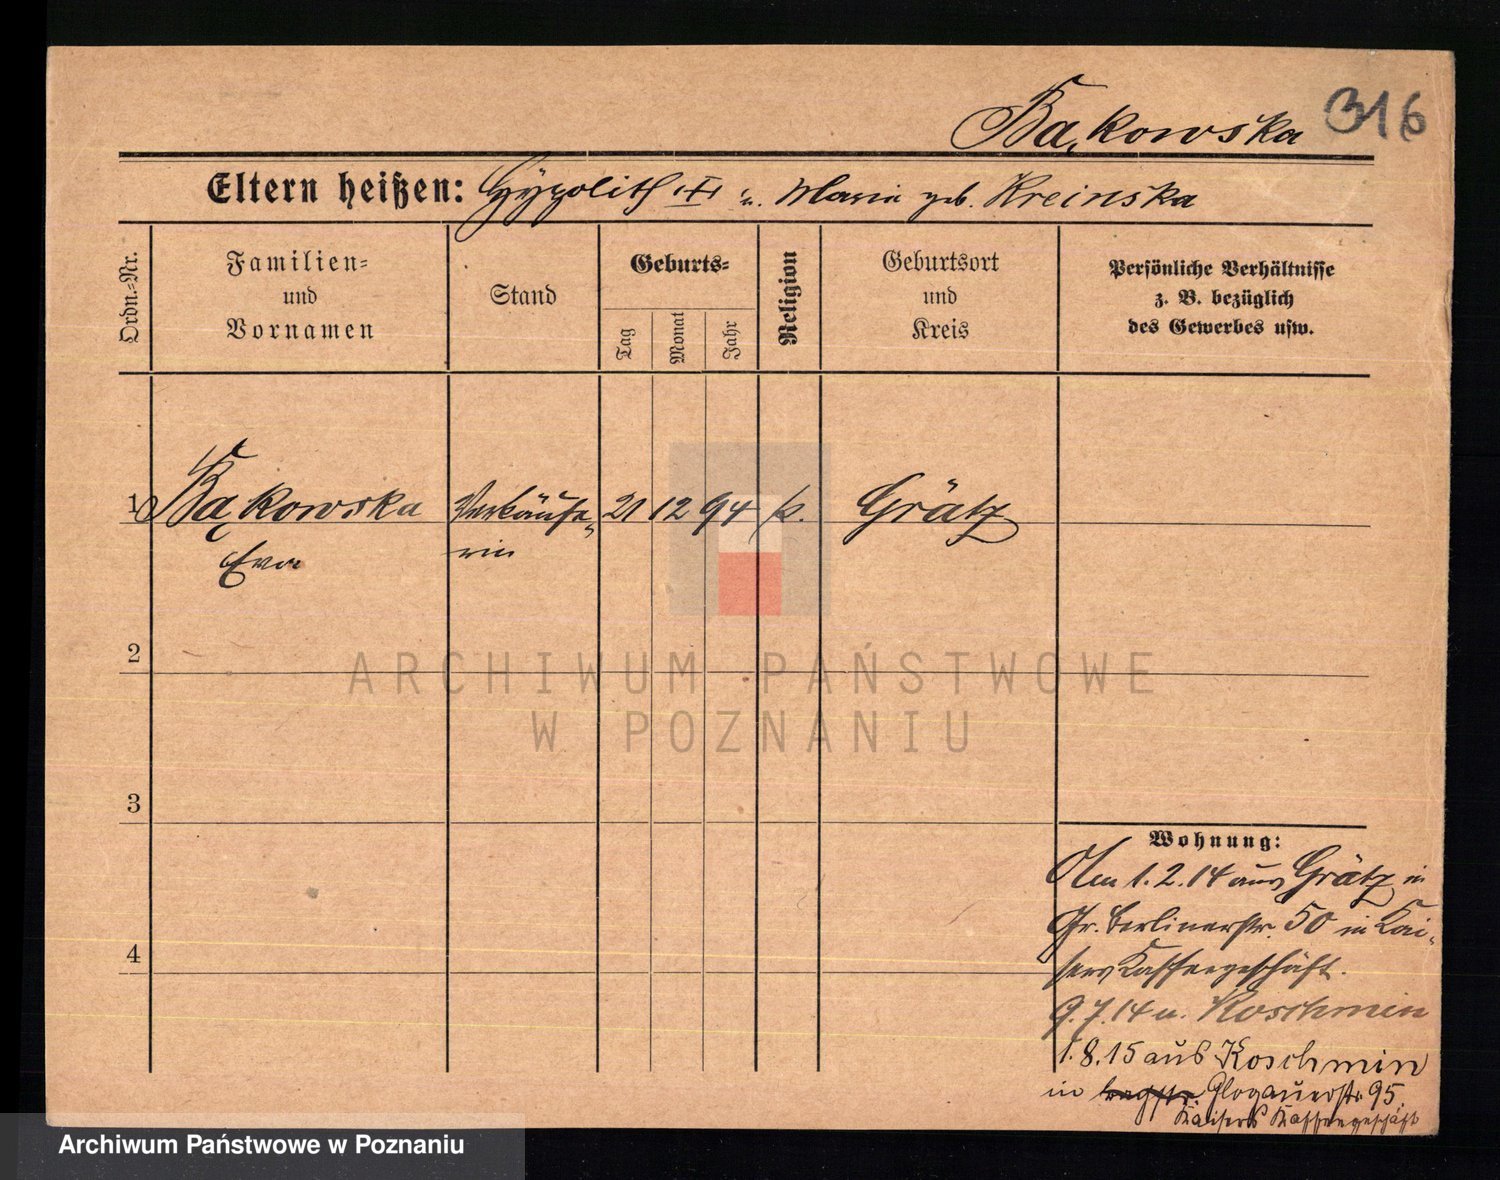 Bąkowska 316
Eltern heißen: Hypolith (†) u. Maria geb. Kreinska
Ordn.-Nr.
Familien-
und
Vornamen
Stand
Geburts-
Tag
Monat
Jahr
Religion
Geburtsort
und
Kreis
Persönliche Verhältnisse
z. B. bezüglich
des Gewerbes usw.
1 Bąkowska Verkäufe- 21 12 94 k. Grätz
Eva rin
2
ARCHIWUM PAŃSTWOWE
W POZNANIU
3
Wohnung:
Am 1.2.14 aus Grätz in
Gr. Berlinerstr. 50 in Kai-
sers Kaffeegeschäft.
4
9.7.14 n. Koschmin
1.8.15 aus Koschmin
in Glogauerstr. 95
Kaisers Kaffeegeschäft
Archiwum Państwowe w Poznaniu